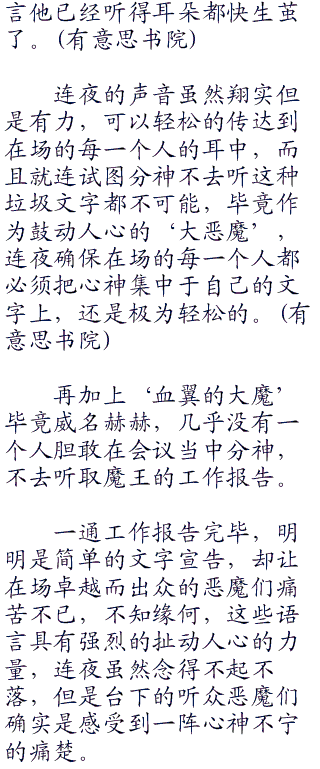 言他已经听得耳朵都快生茧
了。(有意思书院)
连夜的声音虽然翔实但
是有力，可以轻松的传达到
在场的每一个人的耳中，而
且就连试图分神不去听这种
垃圾文字都不可能，毕竟作
为鼓动人心的‘大恶魔’，
连夜确保在场的每一个人都
必须把心神集中于自己的文
字上，还是极为轻松的。(有
意思书院)
再加上‘血翼的大魔’
毕竟威名赫赫，几乎没有一
个人胆敢在会议当中分神，
不去听取魔王的工作报告。
一通工作报告完毕，明
明是简单的文字宣告，却让
在场卓越而出众的恶魔们痛
苦不已，不知缘何，这些语
言具有强烈的扯动人心的力
量，连夜虽然念得不起不
落，但是台下的听众恶魔们
确实是感受到一阵心神不宁
的痛楚。